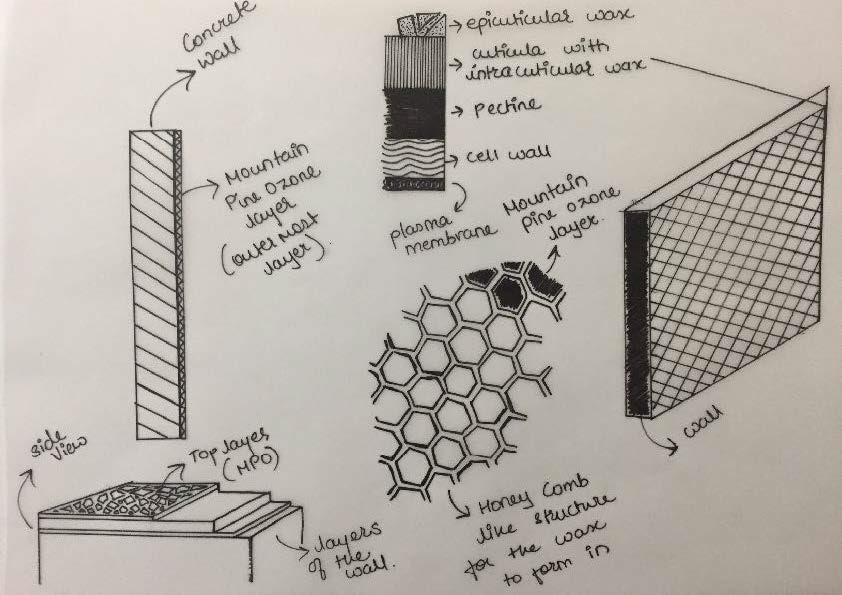 Concrete
wall
Mountain
Pine Ozone
layer
(outer most
layer)
epicuticular wax
cuticula with
intracuticular wax
Pectine
cell wall
plasma
membrane
Mountain
Pine Ozone
layer.
wall
Side
View
Top layer
(MPO)
layers
of the
wall.
Honey Comb
like structure
for the wax
to form in